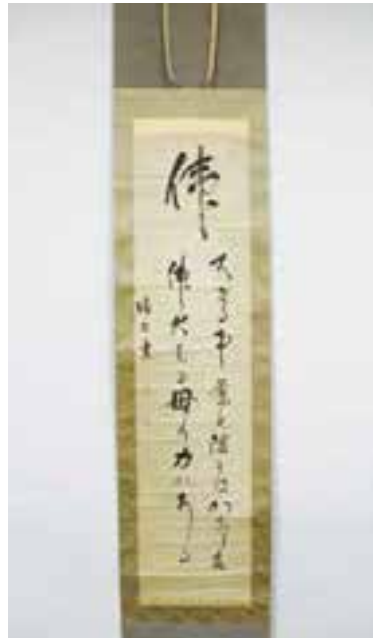 偉
大なる事業の陰にはかならず
偉大なる母の力がある
書